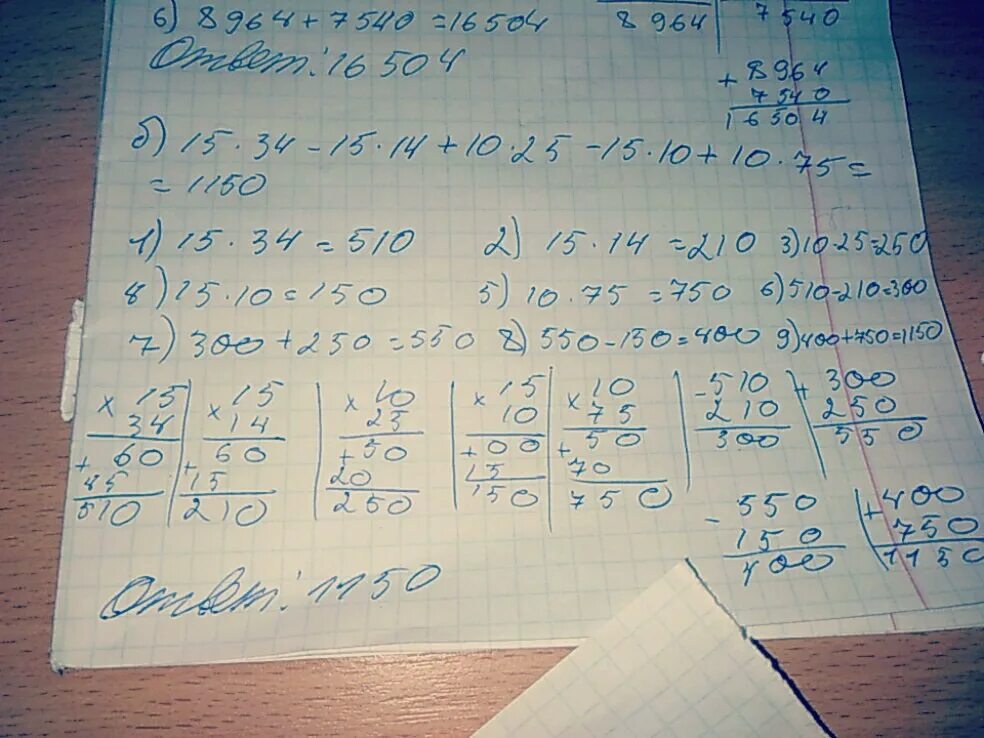 6) 8964 + 7540 = 16504
8964
7540
Ответ: 16504
+ 8964
7540
16504
б) 15 · 34 - 15 · 14 + 10 · 25 - 15 · 10 + 10 · 75 =
= 1150
1) 15 · 34 = 510 2) 15 · 14 = 210 3) 10 · 25 = 250
8) 15 · 10 = 150 5) 10 · 75 = 750 6) 510 - 210 = 300
7) 300 + 250 = 550 8) 550 - 150 = 400 9) 400 + 750 = 1150
× 15
34
+ 60
45
510
× 15
14
+ 60
15
210
× 10
25
+ 50
20
250
× 15
10
+ 00
15
150
× 10
75
+ 50
70
750
- 510
210
300
+ 300
250
550
- 550
150
400
+ 400
750
1150
Ответ: 1150